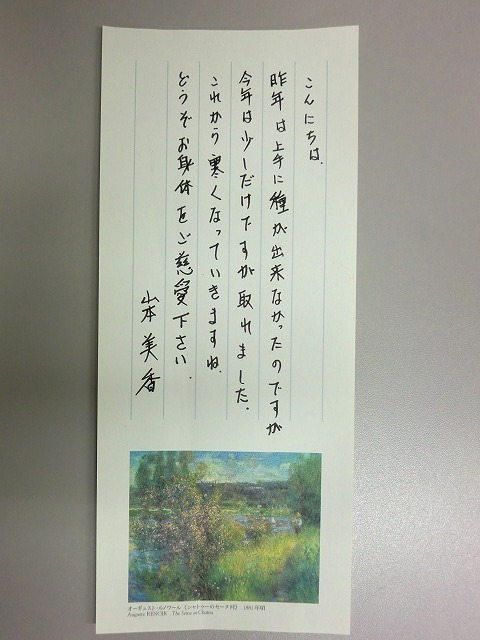 こんにちは、
昨年は上手に種が出来なかったのですが
今年は少しだけですが取れました。
これから寒くなっていきますね、
どうぞお身体をご慈愛下さい。
山本美香
オーギュスト・ルノワール 《シャトゥーのセーヌ河》 1881年頃
Auguste RENOIR The Seine at Chatou